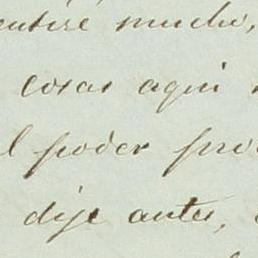 mucho,
cosas aqui
poder
dije antes,